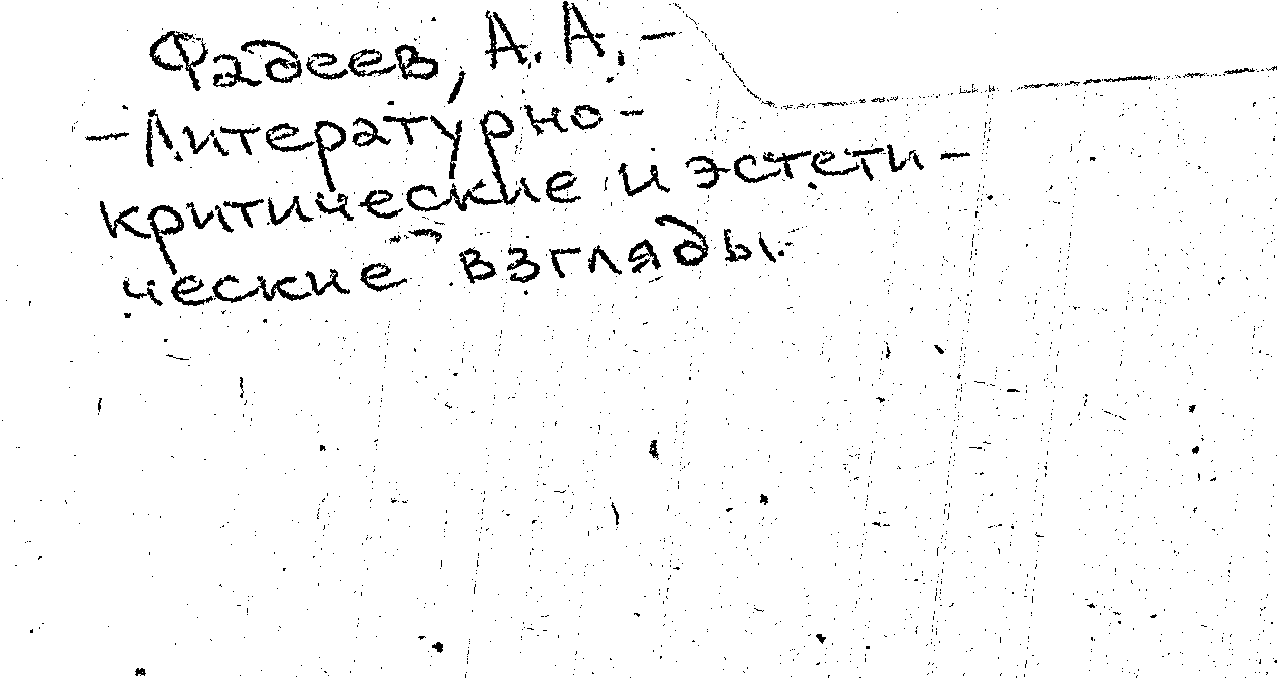 Фадеев, А. А. –
– Литературно-
критические и эстети-
ческие взгляды.